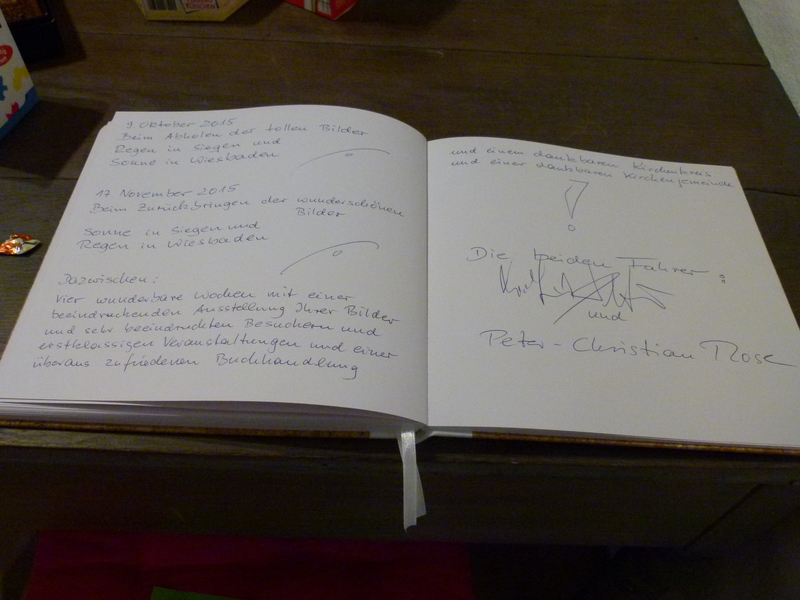 9. Oktober 2015
Beim Abholen der tollen Bilder
Regen in Siegen und
Sonne in Wiesbaden
17 November 2015
Beim Zurückbringen der wunderschönen
Bilder
Sonne in Siegen und
Regen in Wiesbaden
Dazwischen:
Vier wunderbare Wochen mit einer
beeindruckenden Ausstellung Ihrer Bilder
und sehr beeindruckten Besuchern und
erstklassigen Veranstaltungen und einer
überaus zufriedenen Buchhandlung
und einem dankbaren Kirchenkreis
und einer dankbaren Kirchengemeinde
!
Die beiden Fahrer :
und
Peter-Christian Rose